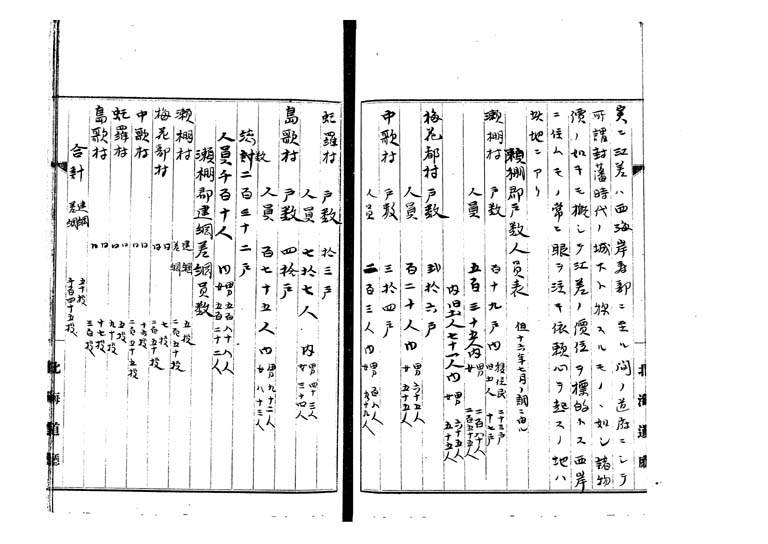 実ニ江差ハ西海岸寿都ニ至ル間ノ首府ニシテ
可謂封藩時代ノ城下ト抜スルモノヽ如シ諸物
價ノ如キモ概シテ江差ノ價位ヲ標的トス西岸
ニ住ムモノ常ニ眼ヲ注キ依頼心ヲ起スノ地ハ
此地ニアリ
瀬棚郡戸数人員表 但十六年七月ノ調ニ由ル
瀬棚村 戸数 百十九戸 内 移住民 二十三戸 旧土人 十七戸
人員 五百三十五人内 男 二百八十人 女 二百五十五人
内旧土人七十一人内 男 女
梅花都村 戸数 弐拾六戸
人員 百二十人 内 男 六十五人 女 五十五人
中歌村 戸数 三拾四戸
人員 二百三人内 男 女
虻羅村 戸数 拾三戸
人員 七拾七人 内 男 四十三人 女 三十四人
島歌村 戸数 四拾戸
人員 百七十五人内 男 九十二人 女 八十三人
総計 二百三十二戸
人員千百十人 内 男 五百八十八人 女 五百二十二人
瀬棚郡建網差網員数
瀬棚村 建網 五投 差網
梅花都村 同 七投 同
中歌村 同 同
虻羅村 同 五投 同 九十投
島歌村 同 十七投 同
合計 建網 五十投 差網 千百四十五投
北海道廳
北海道廳